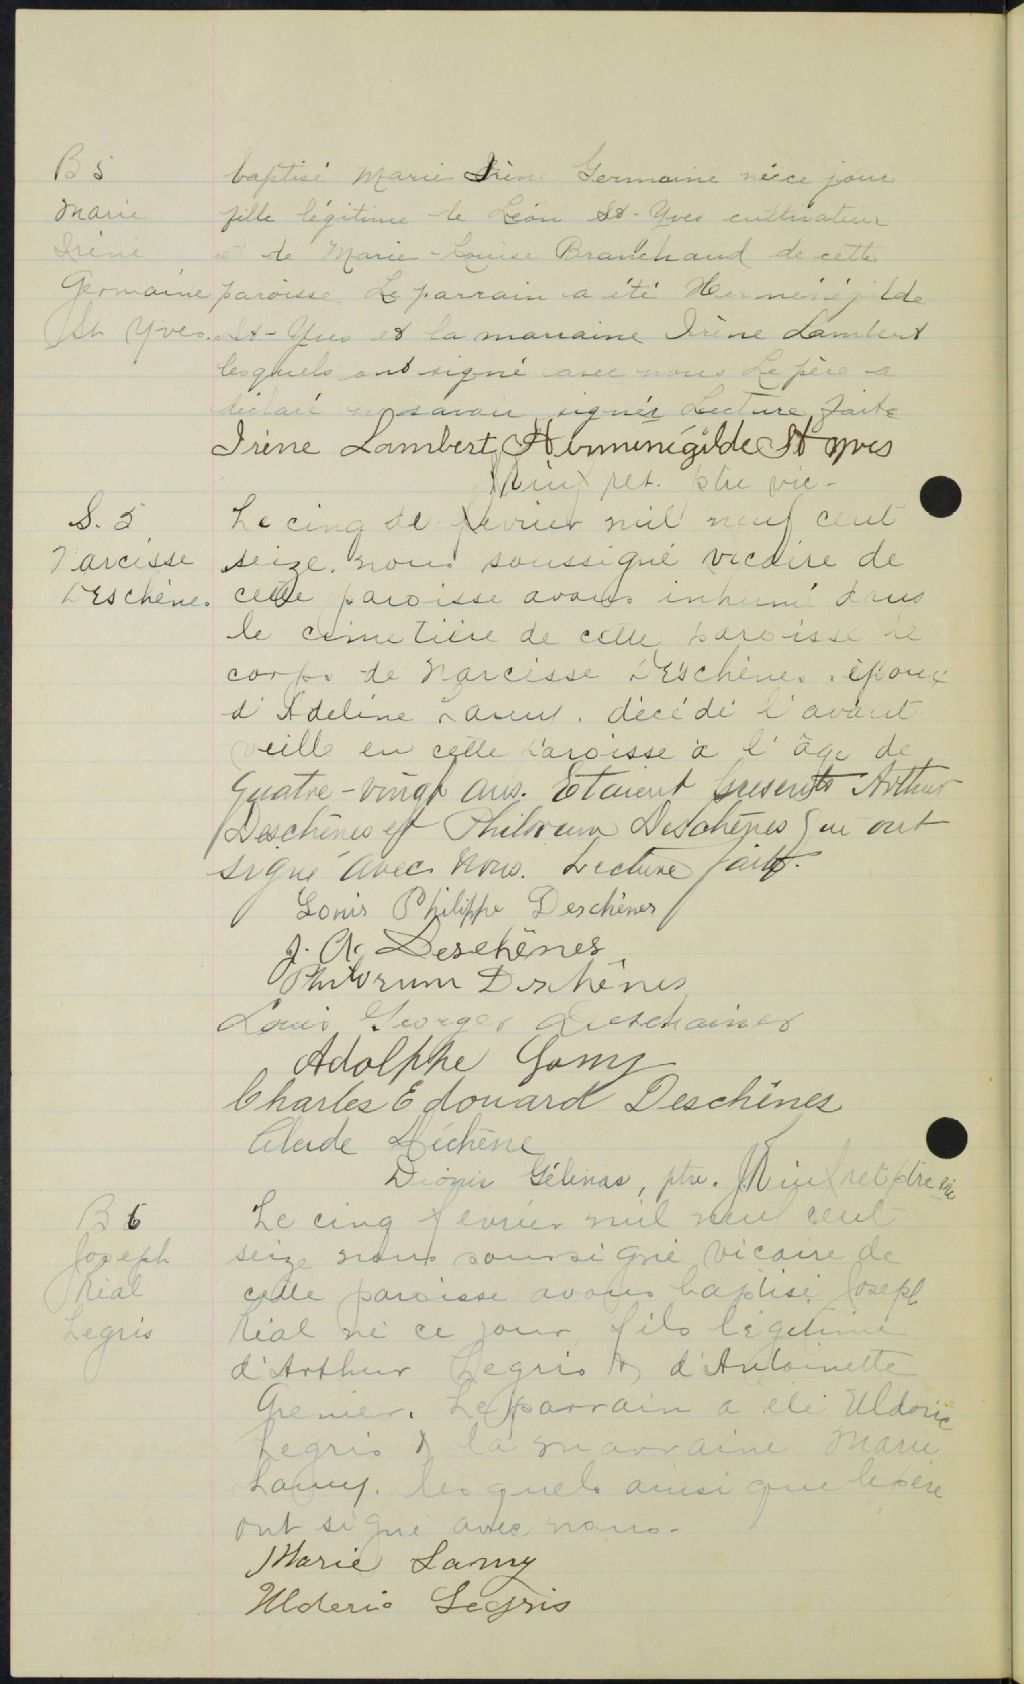 B 5
Marie
Irène
Germaine
St Yves.
baptisé Marie Irène Germaine née ce jour
fille légitime de Léon St-Yves cultivateur
et de Marie-Louise Branchaud de cette
paroisse Le parrain a été Herménégilde
St-Yves et la marraine Irène Lambert
lesquels ont signé avec nous Le père a
déclaré ne savoir signer Lecture faite
Irène Lambert Herménégilde St yves
ptre vic-
S. 5
Narcisse
DEschênes
Le cinq de février mil neuf cent
seize. nous soussigné vicaire de
cette paroisse avons inhumé dans
le cimetière de cette paroisse le
corps de Narcisse DEschênes, époux
d'Adeline Lamy. décédé l'avant
veille en cette paroisse à l'âge de
Quatre-vingt ans. Etaient présents Arthur
Deschênes et Philorum Deschênes qui ont
signé avec nous. Lecture faite.
Louis Philippe Deschênes
J. A. Deschênes
Philorum Deschênes
Louis Georges Deschaines
Adolphe Lamy
Charles Edouard Deschênes
Déchêne
Dionis Gélinas, ptre. ptre vic
B 6
Joseph
Réal
Legris
Le cinq février mil neuf cent
seize nous soussigné vicaire de
cette paroisse avons baptisé Joseph
Réal né ce jour fils légitime
d'Arthur Legris & d'Antoinette
Grenier. Le parrain a été Uldoric
Legris & la marraine Marie
Lamy. lesquels ainsi que le père
ont signé avec nous-
Marie Lamy
Ulderic Legris